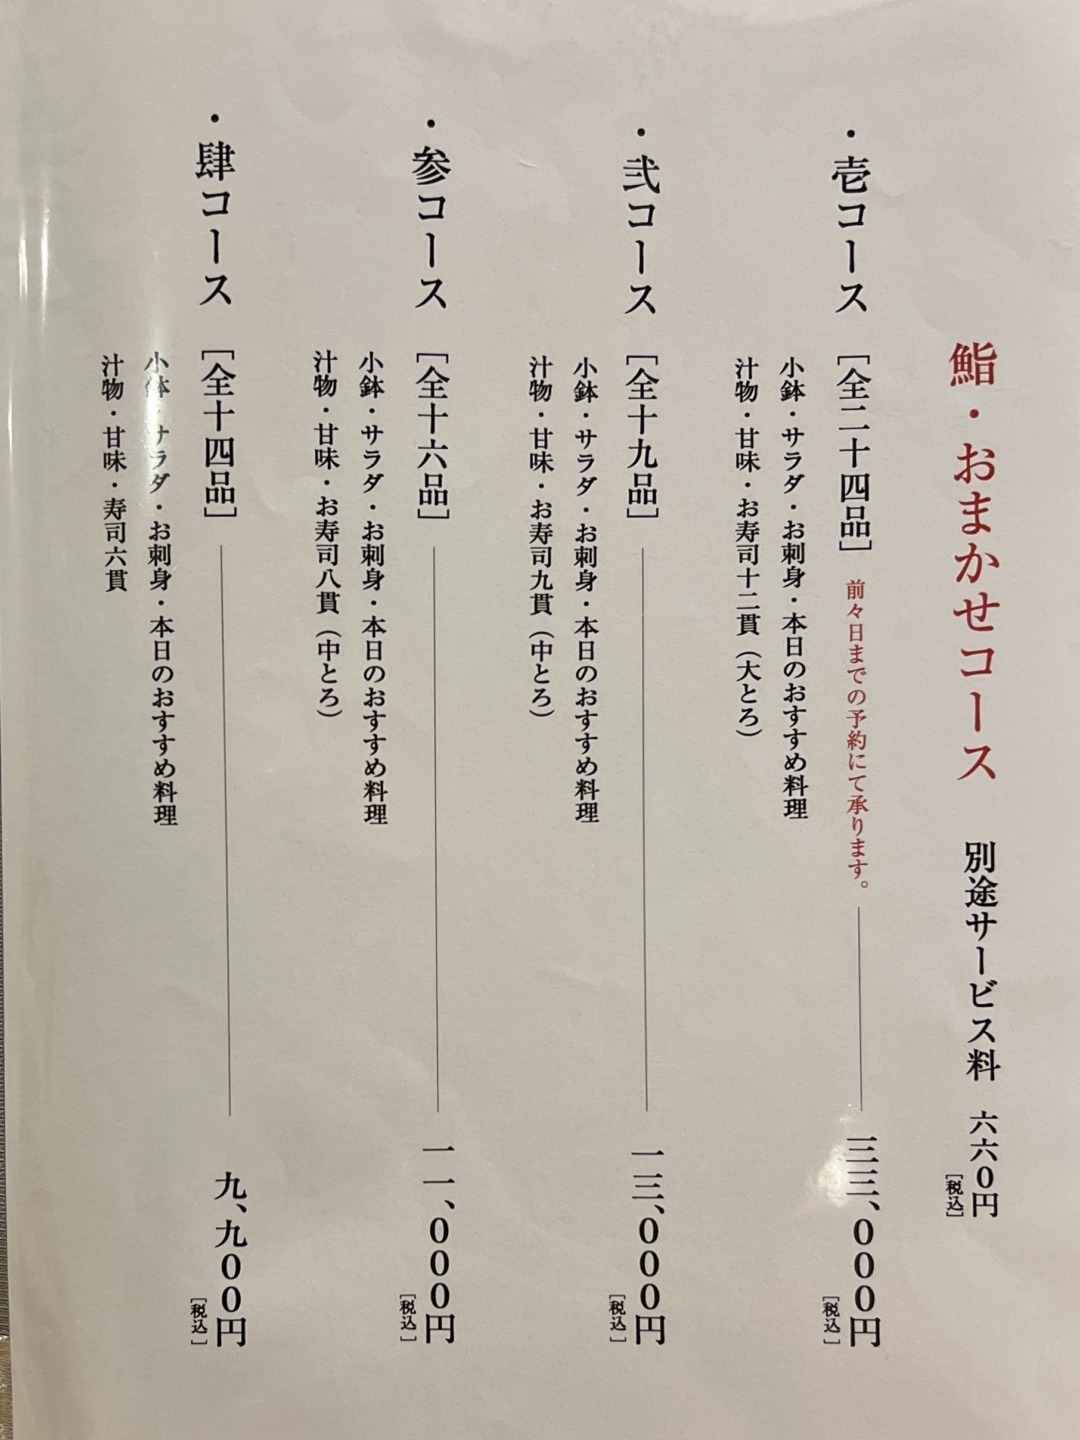 鮨・おまかせコース 別途サービス料 六六０円[税込]
・壱コース [全二十四品] 前々日までの予約にて承ります。 三三、０００円[税込]
小鉢・サラダ・お刺身・本日のおすすめ料理
汁物・甘味・お寿司十二貫（大とろ）
・弐コース [全十九品] 一三、０００円[税込]
小鉢・サラダ・お刺身・本日のおすすめ料理
汁物・甘味・お寿司九貫（中とろ）
・参コース [全十六品] 一一、０００円[税込]
小鉢・サラダ・お刺身・本日のおすすめ料理
汁物・甘味・お寿司八貫（中とろ）
・肆コース [全十四品] 九、九００円[税込]
小鉢・サラダ・お刺身・本日のおすすめ料理
汁物・甘味・寿司六貫